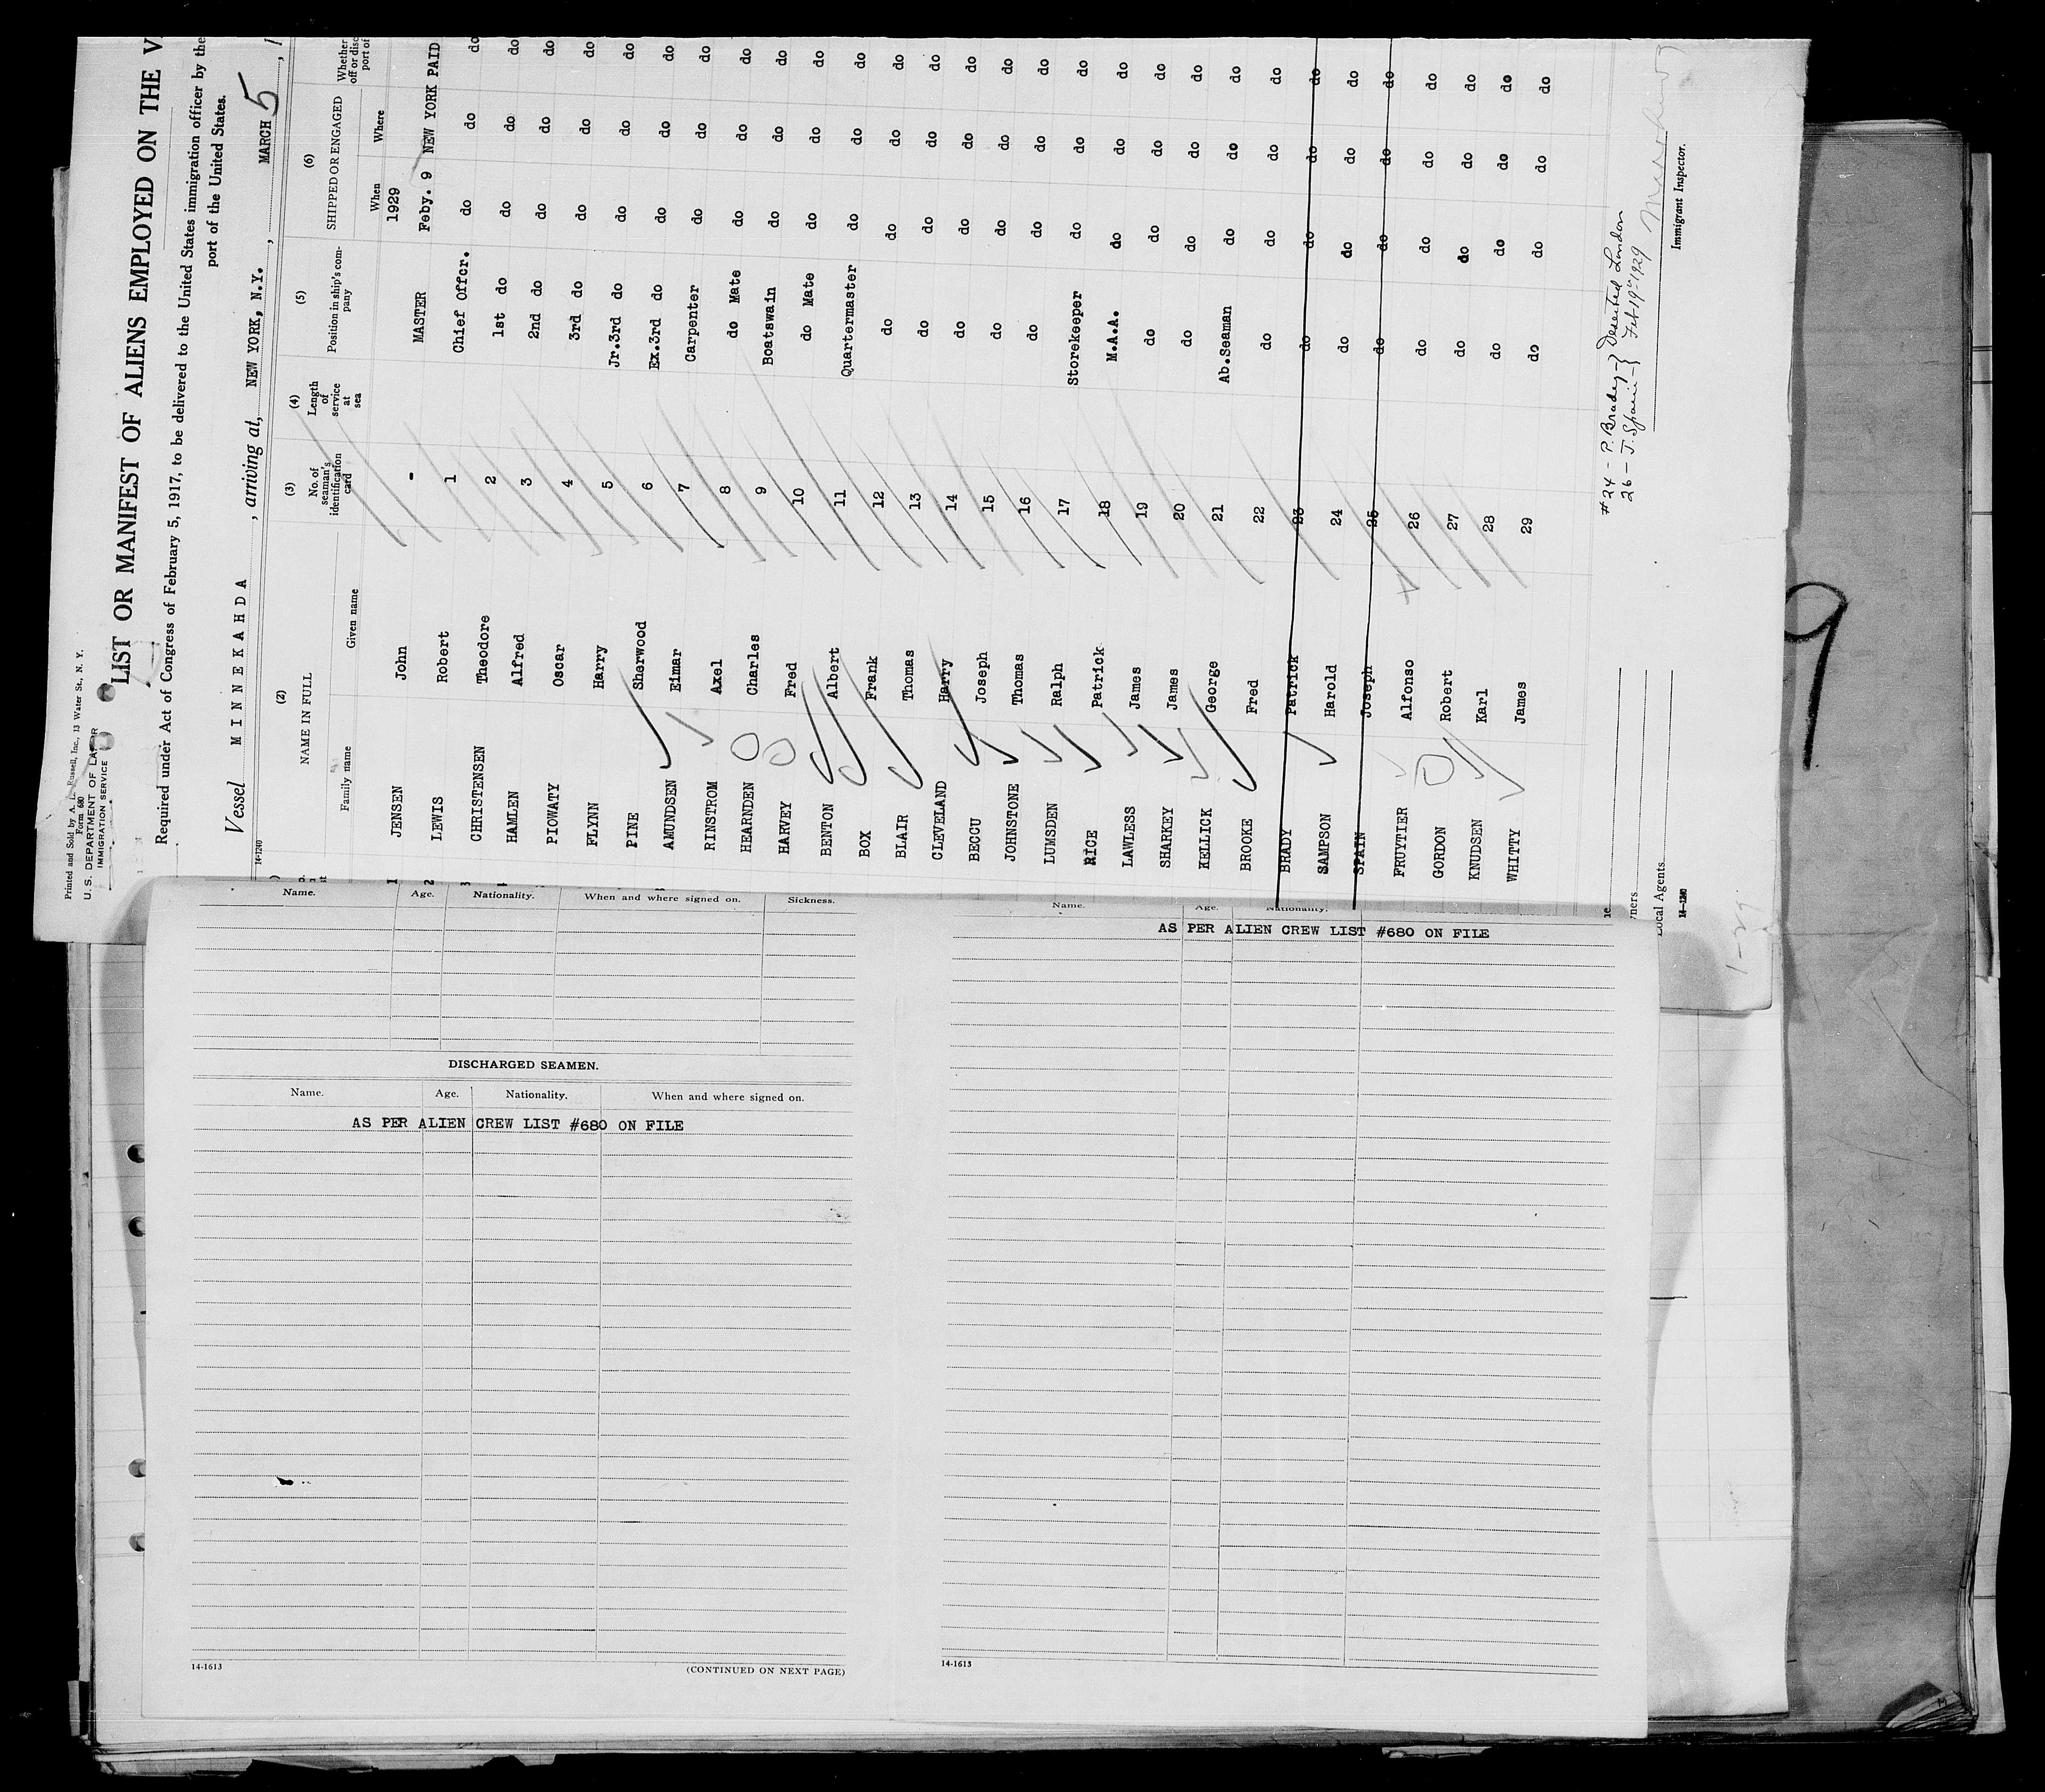 Printed and Sold by A. L. Russell, Inc., 13 Water St., N. Y.
Form 680
U. S. DEPARTMENT OF LABOR
IMMIGRATION SERVICE
LIST OR MANIFEST OF ALIENS EMPLOYED ON THE V
Required under Act of Congress of February 5, 1917, to be delivered to the United States immigration officer by the
port of the United States.
Vessel MINNEKAHDA , arriving at, NEW YORK, N.Y. , MARCH 5 ,
14-1240
(2) (3) (4) (5) (6)
NAME IN FULL No. of seaman's identification card Length of service at sea Position in ship's company SHIPPED OR ENGAGED Whether
Family name Given name When Where
1929
1 JENSEN John - MASTER Feby. 9 NEW YORK PAID
2 LEWIS Robert 1 Chief Offcr. do do do
3 CHRISTENSEN Theodore 2 1st do do do do
HAMLEN Alfred 3 2nd do do do do
PIOWATY Oscar 4 3rd do do do do
FLYNN Harry 5 Jr.3rd do do do do
PINE Sherwood 6 Ex.3rd do do do do
AMUNDSEN Eimar 7 Carpenter do do do
RINSTROM Axel 8 do Mate do do do
HEARNDEN Charles 9 Boatswain do do do
HARVEY Fred 10 do Mate do do do
BENTON Albert 11 Quartermaster do do do
BOX Frank 12 do do do do
BLAIR Thomas 13 do do do do
CLEVELAND Harry 14 do do do do
BECCU Joseph 15 do do do do
JOHNSTONE Thomas 16 do do do do
LUMSDEN Ralph 17 Storekeeper do do do
RICE Patrick 18 M.A.A. do do do
LAWLESS James 19 do do do do
SHARKEY James 20 do do do do
KELLICK George 21 Ab.Seaman do do do
BROOKE Fred 22 do do do do
BRADY Patrick 23 do do do do
SAMPSON Harold 24 do do do do
SPAIN Joseph 25 do do do do
FRUYTIER Alfonso 26 do do do do
GORDON Robert 27 do do do do
KNUDSEN Karl 28 do do do do
WHITTY James 29 do do do do
#24 - P. Brady - } Deserted London
26 - J. Spain - } Feb 19 1929
Immigrant Inspector.
Local Agents
14-1240
1-29
9
Name. Age. Nationality. When and where signed on. Sickness.
DISCHARGED SEAMEN.
Name. Age. Nationality. When and where signed on.
AS PER ALIEN CREW LIST #680 ON FILE
14-1613
(CONTINUED ON NEXT PAGE)
Name. Age. Nationality.
AS PER ALIEN CREW LIST #680 ON FILE
14-1613